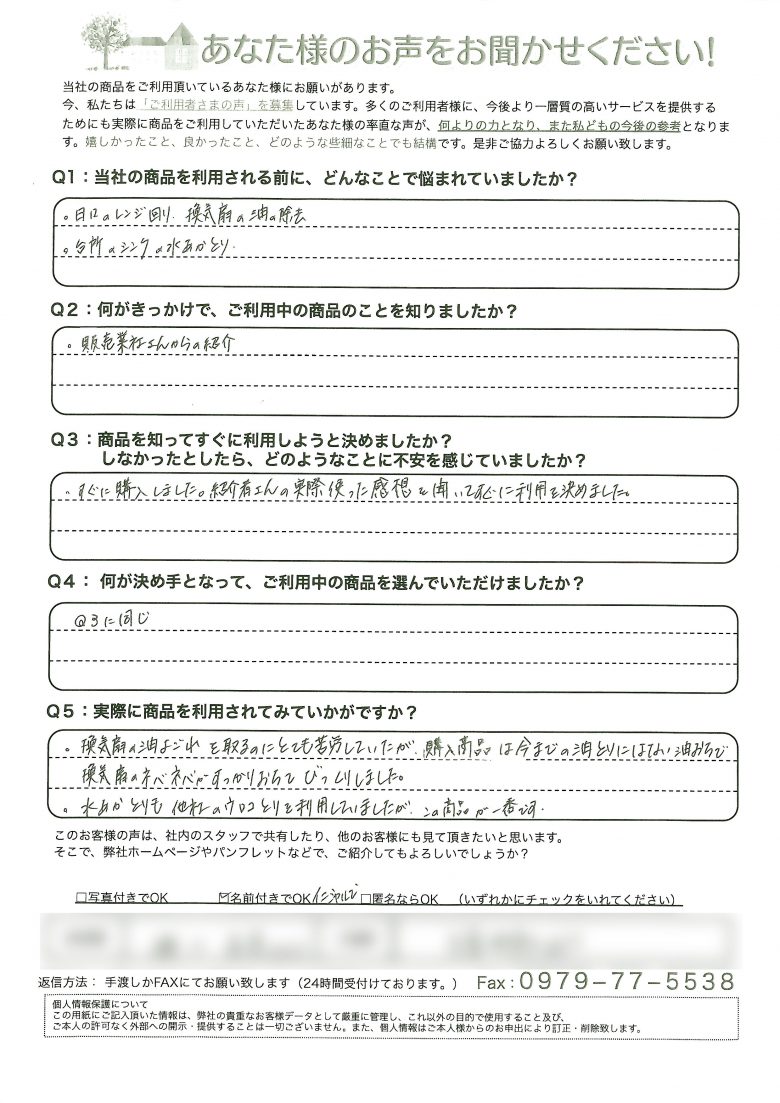 あなた様のお声をお聞かせください!
当社の商品をご利用頂いているあなた様にお願いがあります。
今、私たちは「ご利用者さまの声」を募集しています。多くのご利用者様に、今後より一層質の高いサービスを提供する
ためにも実際に商品をご利用していただいたあなた様の率直な声が、何よりの力となり、また私どもの今後の参考となりま
す。嬉しかったこと、良かったこと、どのような些細なことでも結構です。是非ご協力よろしくお願い致します。
Q1：当社の商品を利用される前に、どんなことで悩まれていましたか？
。日口のレンジ回り、換気扇の油の除去
。台所のシンクの水あかとり.
Q2：何がきっかけで、ご利用中の商品のことを知りましたか？
。販売業社さんからの紹介
Q3：商品を知ってすぐに利用しようと決めましたか？
しなかったとしたら、どのようなことに不安を感じていましたか？
。すぐに購入しました。紹介者さんの実際使った感想を聞いてすぐに利用を決めました。
Q4： 何が決め手となって、ご利用中の商品を選んでいただけましたか？
Q3に同じ
Q5：実際に商品を利用されてみていかがですか？
。換気扇の油よごれを取るのにとても苦労していたが、購入商品は今までの油とりにはない油おちで
換気扇のネバネバがすっかりおちてびっくりしました。
。水あかとりも他社のウロコとりを利用していましたが、この商品が一番です.
このお客様の声は、社内のスタッフで共有したり、他のお客様にも見て頂きたいと思います。
そこで、弊社ホームページやパンフレットなどで、ご紹介してもよろしいでしょうか？
□写真付きでOK ☑名前付きでOK イニシャルで □匿名ならOK （いずれかにチェックをいれてください）
返信方法： 手渡しかFAXにてお願い致します（24時間受付けております。） Fax：0979-77-5538
個人情報保護について
この用紙にご記入頂いた情報は、弊社の貴重なお客様データとして厳重に管理し、これ以外の目的で使用すること及び、
ご本人の許可なく外部への開示・提供することは一切ございません。また、個人情報はご本人様からのお申出により訂正・削除致します。